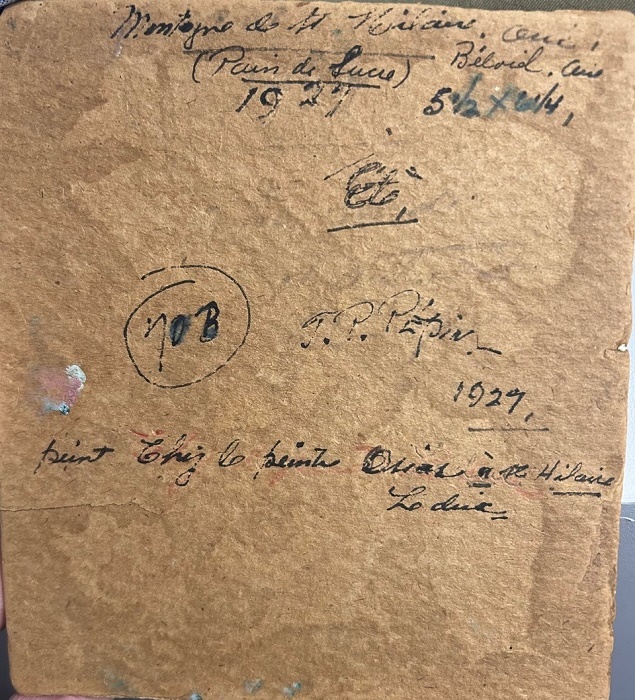 Montagne de St Hilaire.
(Pain de Sucre) Béloeil.
1927 5 1/2 x 6 1/4,
Été,
70B
J. P. Pépin
1927,
peint Chez le peintre Osias à St Hilaire
Leduc